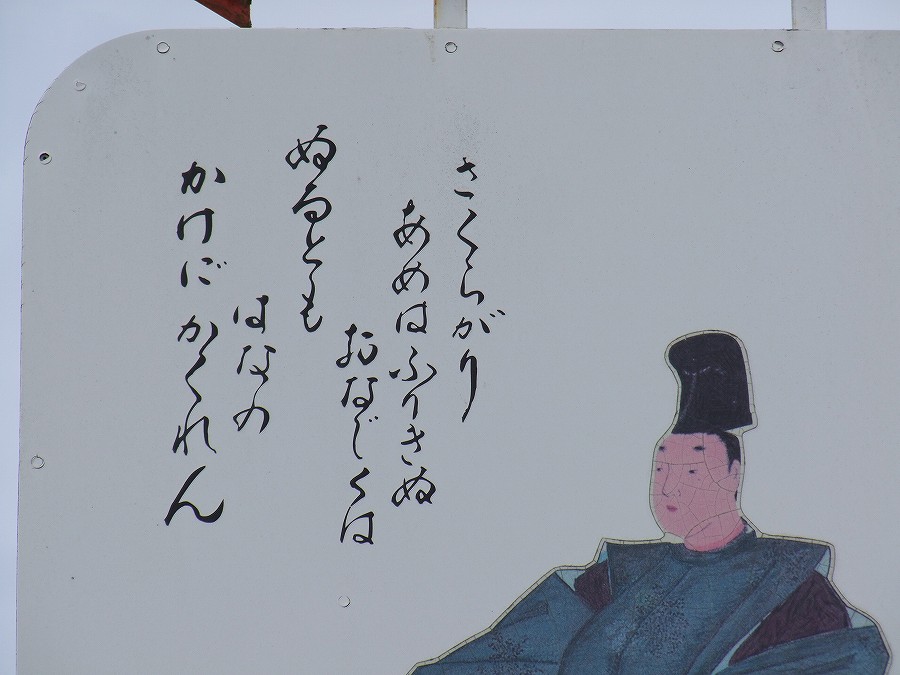 さくらがり
あめはふりきぬ
おなじくは
ぬるとも
はなの
かげにかくれん